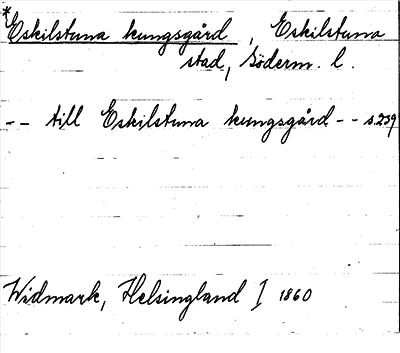 *Eskilstuna kungsgård, Eskilstuna
stad, Söderm. l.
-- till Eskilstuna kungsgård -- s. 239
Widmark, Helsingland I 1860